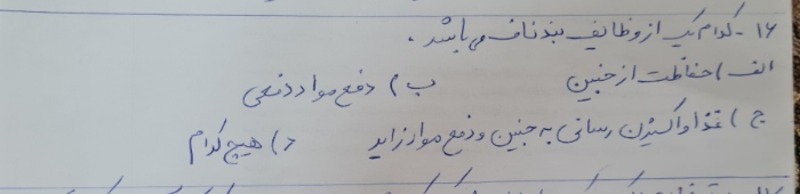 ۱۶- کدام یک از وظایف بند ناف می باشد.
الف) حفاظت از جنین ب) دفع مواد دفعی
ج) غذا و اکسیژن رسانی به جنین و دفع مواد زاید د) هیچ کدام